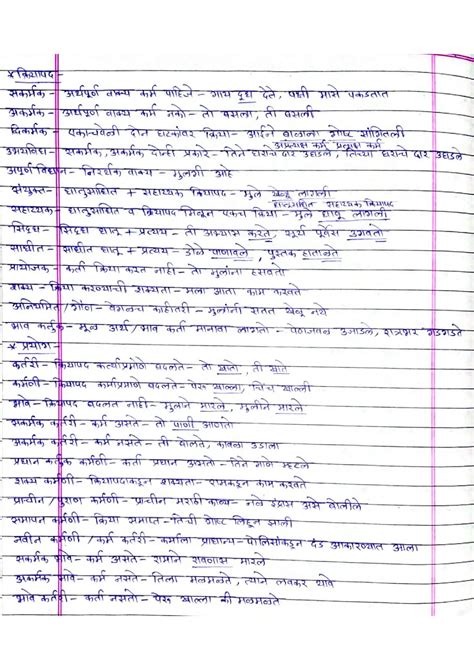 * क्रियापद -
सकर्मक - अर्थपूर्ण वाक्य कर्म पाहिजे - गाय दूध देते, पक्षी मासे पकडतात
अकर्मक - अर्थपूर्ण वाक्य कर्म नको - तो बसला, ती बसली
द्विकर्मक - एकाचवेळी दोन घटकांवर क्रिया - आईने बाळाला गोष्ट सांगितली
अप्रत्यक्ष कर्म प्रत्यक्ष कर्म
उभयविध - सकर्मक, अकर्मक दोन्ही प्रकारे - तिने घराचे दार उघडले, तिच्या घराचे दार उघडले
अपूर्ण विधान - निरर्थक वाक्य - मुलगी आहे
संयुक्त - धातुसाधित + सहाय्यक क्रियापद - मुले खेळू लागली
धातुसाधित सहाय्यक क्रियापद
सहाय्यक - धातुसाधित व क्रियापद मिळून एकच क्रिया - मुले धावू लागली
सिद्ध - सिद्ध धातू + प्रत्यय - ती अभ्यास करते, सूर्य पूर्वेस उगवतो
साधीत - साधीत धातू + प्रत्यय - डोळे पाणावले, पुस्तक हाताळते
प्रायोजक - कर्ता क्रिया करत नाही - तो मुलांना हसवतो
शक्य - क्रिया करण्याची शक्यता - मला आता काम करवते
अनियमित / गौण - वेगळच काहीतरी - मुलांनी सतत खेळू नये
भाव कर्तृक - मूळ अर्थ / भाव कर्ता मानावा लागतो - पेठाजवळ उजाडले, रात्रभर गडगडते
* प्रयोग -
कर्तरी - क्रियापद कर्त्याप्रमाणे बदलते - तो खातो, ती खाते
कर्मणी - क्रियापद कर्माप्रमाणे बदलते - पेरू खाल्ला, चिंच खाल्ली
भावे - क्रियापद बदलत नाही - मुलाने मारले, मुलीने मारले
सकर्मक कर्तरी - कर्म असते - तो पाणी आणतो
अकर्मक कर्तरी - कर्म नसते - ती बोलते, कावळा उडाला
प्रधान कर्तृक कर्मणी - कर्ता प्रधान असतो - तिने गाणे म्हटले
शक्य कर्मणी - क्रियापदाकडून शक्यता - रामाकडून काम करवते
प्राचीन / पुराण कर्मणी - प्राचीन मराठी काव्य - नळे इंद्रास असे बोलीले
समापन कर्मणी - क्रिया समाप्त - तिची गोष्ट लिहून झाली
नवीन कर्मणी / कर्म कर्तरी - कर्माला प्राधान्य - पोलिसांकडून दंड आकारण्यात आला
सकर्मक भावे - कर्म असते - रामाने रावणास मारले
अकर्मक भावे - कर्म नसते - तिला मळमळते, त्याने लवकर यावे
भावे कर्तरी - कर्ता नसतो - पेरू खाल्ला की मळमळते